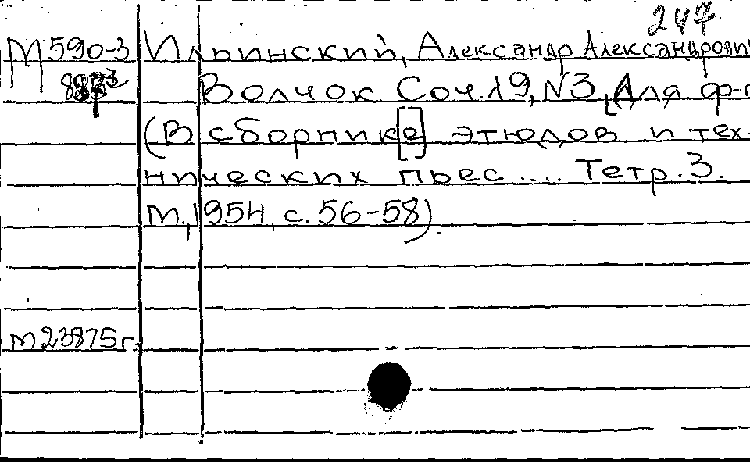 247
М590-3 Ильинский, Александр Александрови
Волчок Соч.19, N3, [Для ф-п
(В сборник[е] этюдов и тех
нических пьес... Тетр.3.
М, 1954, с. 56-58).
М23875г.